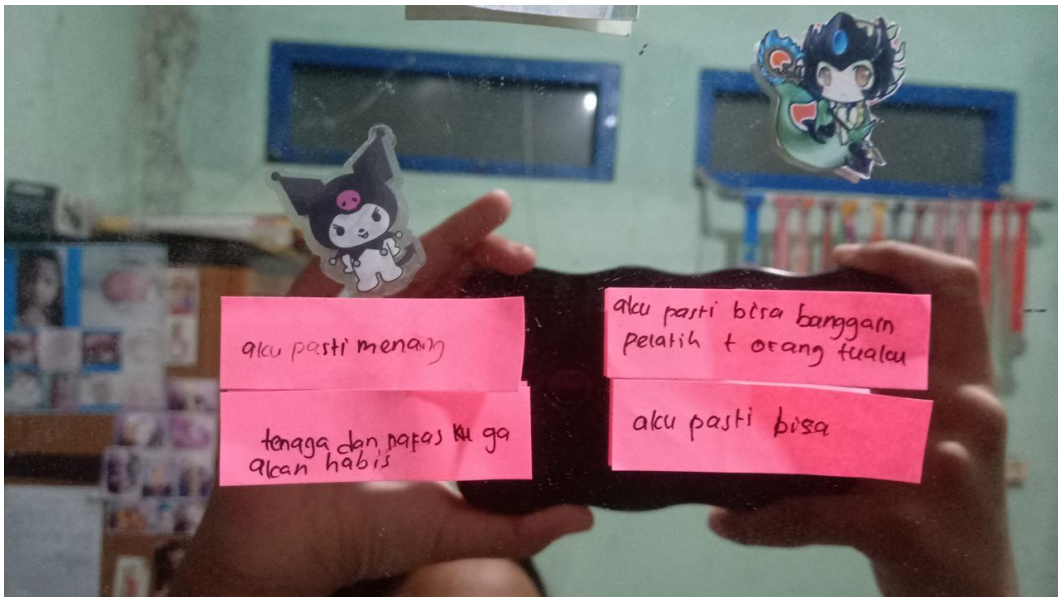 aku pasti menang
tenaga dan napas ku ga
akan habis
aku pasti bisa banggain
pelatih + orang tuaku
aku pasti bisa